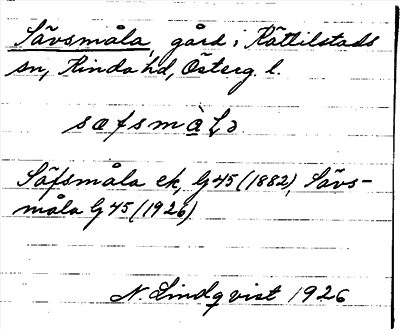 Sävsmåla, gård i Kättilstads
sn, Kinda hd, Österg. l.
sæfsmàLə
Säfsmåla ek, G 45 (1882), Sävs-
måla G 45 (1926)
N. Lindqvist 1926